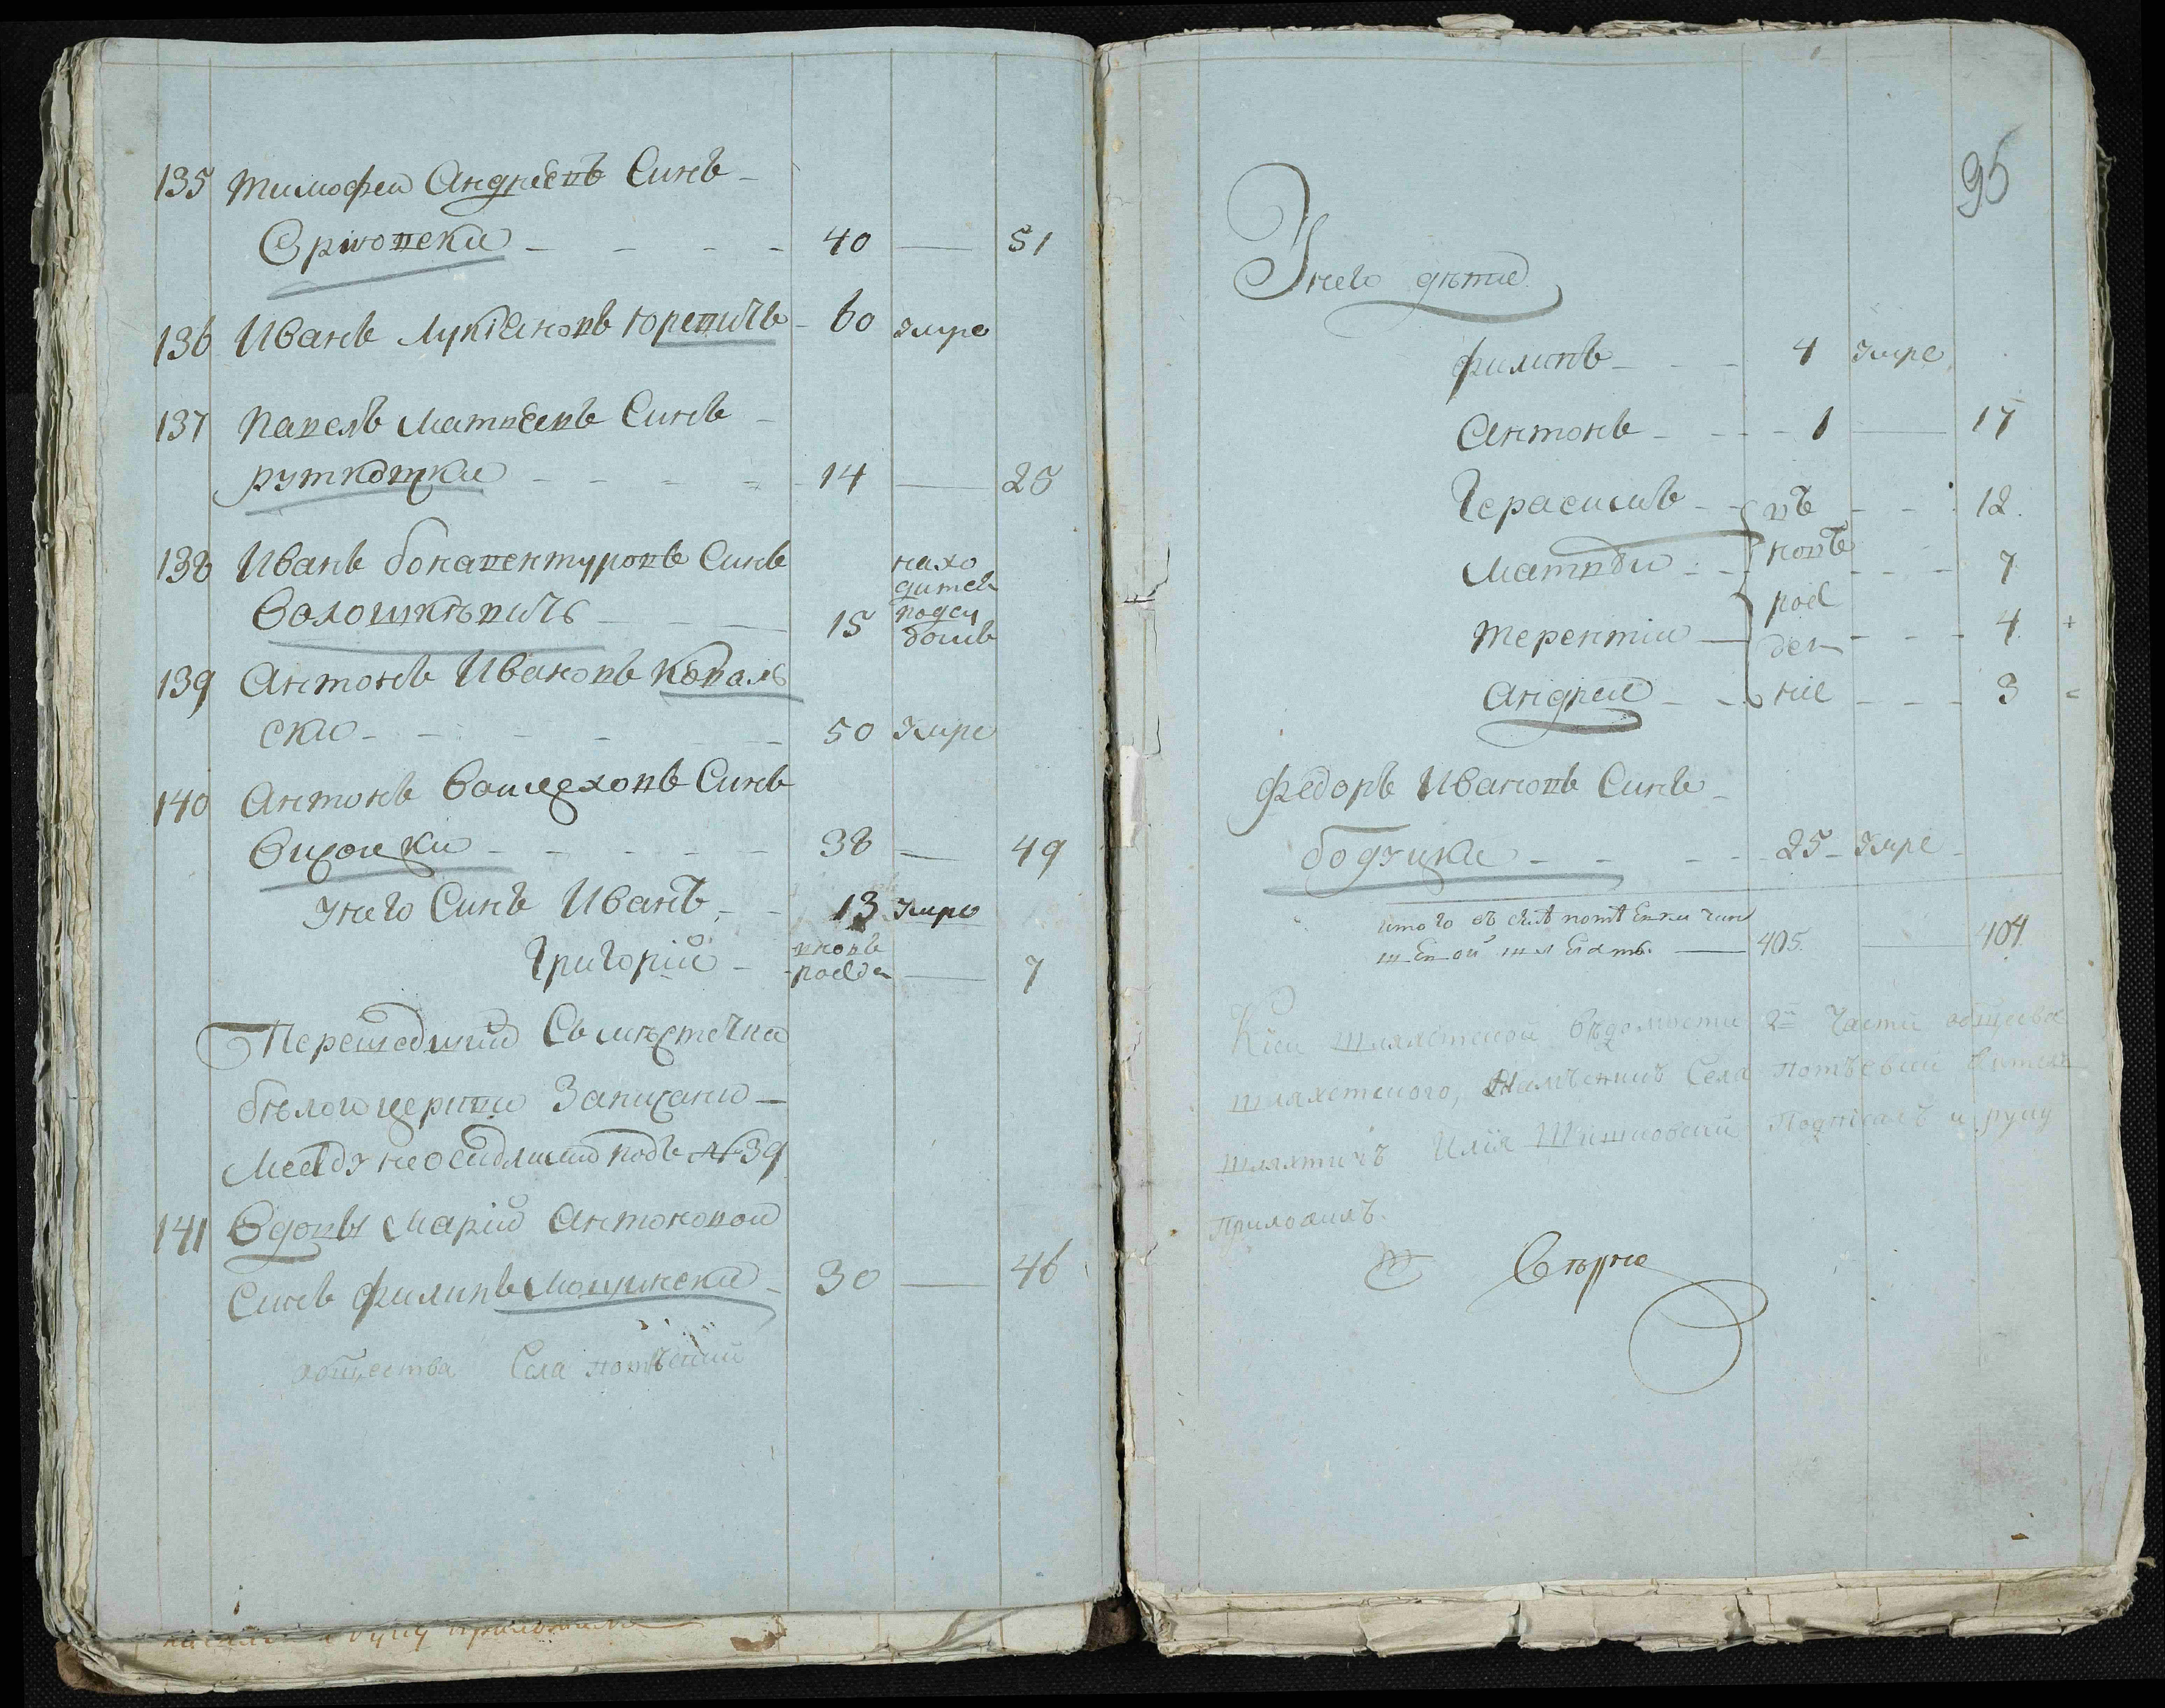 135 Тимофеи Андреевъ Синъ -
40 — 51
136 Иванъ Лукіановъ Юревичъ - 60 умре
137 Павелъ Матвеевъ Синъ -
Рутковски - - - - 14 — 25
138 Иванъ бонавентуровъ Синъ
Волошкѣвичъ - - - 15 находитса подсудомъ
139 Антонъ Ивановъ Коваль
ски - - - - - 50 умре
140 Антонъ Войцеховъ Синъ
38 — 49
Унего Синъ Иванъ - - 13 умре
Григорій - вновь рожден — 7
Перешедший Сь мѣстечка
бѣлоицеркви Записани -
Между неосидлими подъ № 39
141 Вдовы Маріи Антоновой
Синъ Филипъ Мошински - 30 — 46
общества Села
руку приложилъ
95
Унего дѣти
Филипъ - - - 4 умре
Антонъ - - - 1 — 17
Герасимъ - - въ - - - 12
Матвѣи - - новѣ - - - 7
Терентіи — рож - - - 4 +
Андреи - - ден ніе - - - 3
Федоръ Ивановъ Синъ -
25 - умре -
итого
405 — 404
Къ сеи шляхетской вѣдомости 2й Части общества
шляхетского, Села житель
шляхтичъ Илія Подписалъ и руку
Приложилъ.
Вѣрно